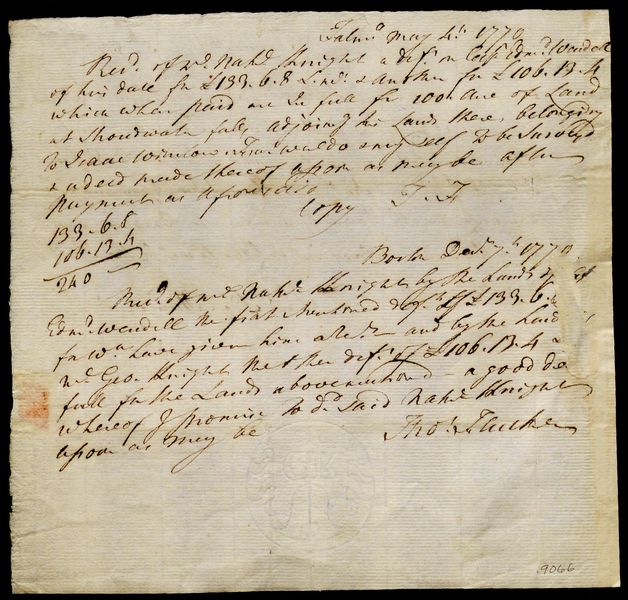 Falmo May 4th 1770
Recd of mr Nathl Knight a dft on Capt Edmd Wendell
of this date for £133.6.8 Lmo & another for £106.13.4
which when paid are In full for 100 Acres of Land
at Shoudwater falls adjoing his Lands there, belonging
To Isaac Winslow mrs Waldo & my self to be Surveyd
& a deed made thereof as soon as may be after
Payment as Aforesaid
Copy T. F.
133.6.8
106.13.4
240
Bosto Decr 7th 1770
Recd of mr Nathl Knight by the Lands of
Edmd Wendell the first mentiond of £133.6.8
for wh have given him a Rect and by the Land
mr Geo. Knight the other dft of £106.13.4
full for the Lands abovementiond a good de
whereof I promise To the said Nathl Knight
as soon as may be
Thos Flucker
9066